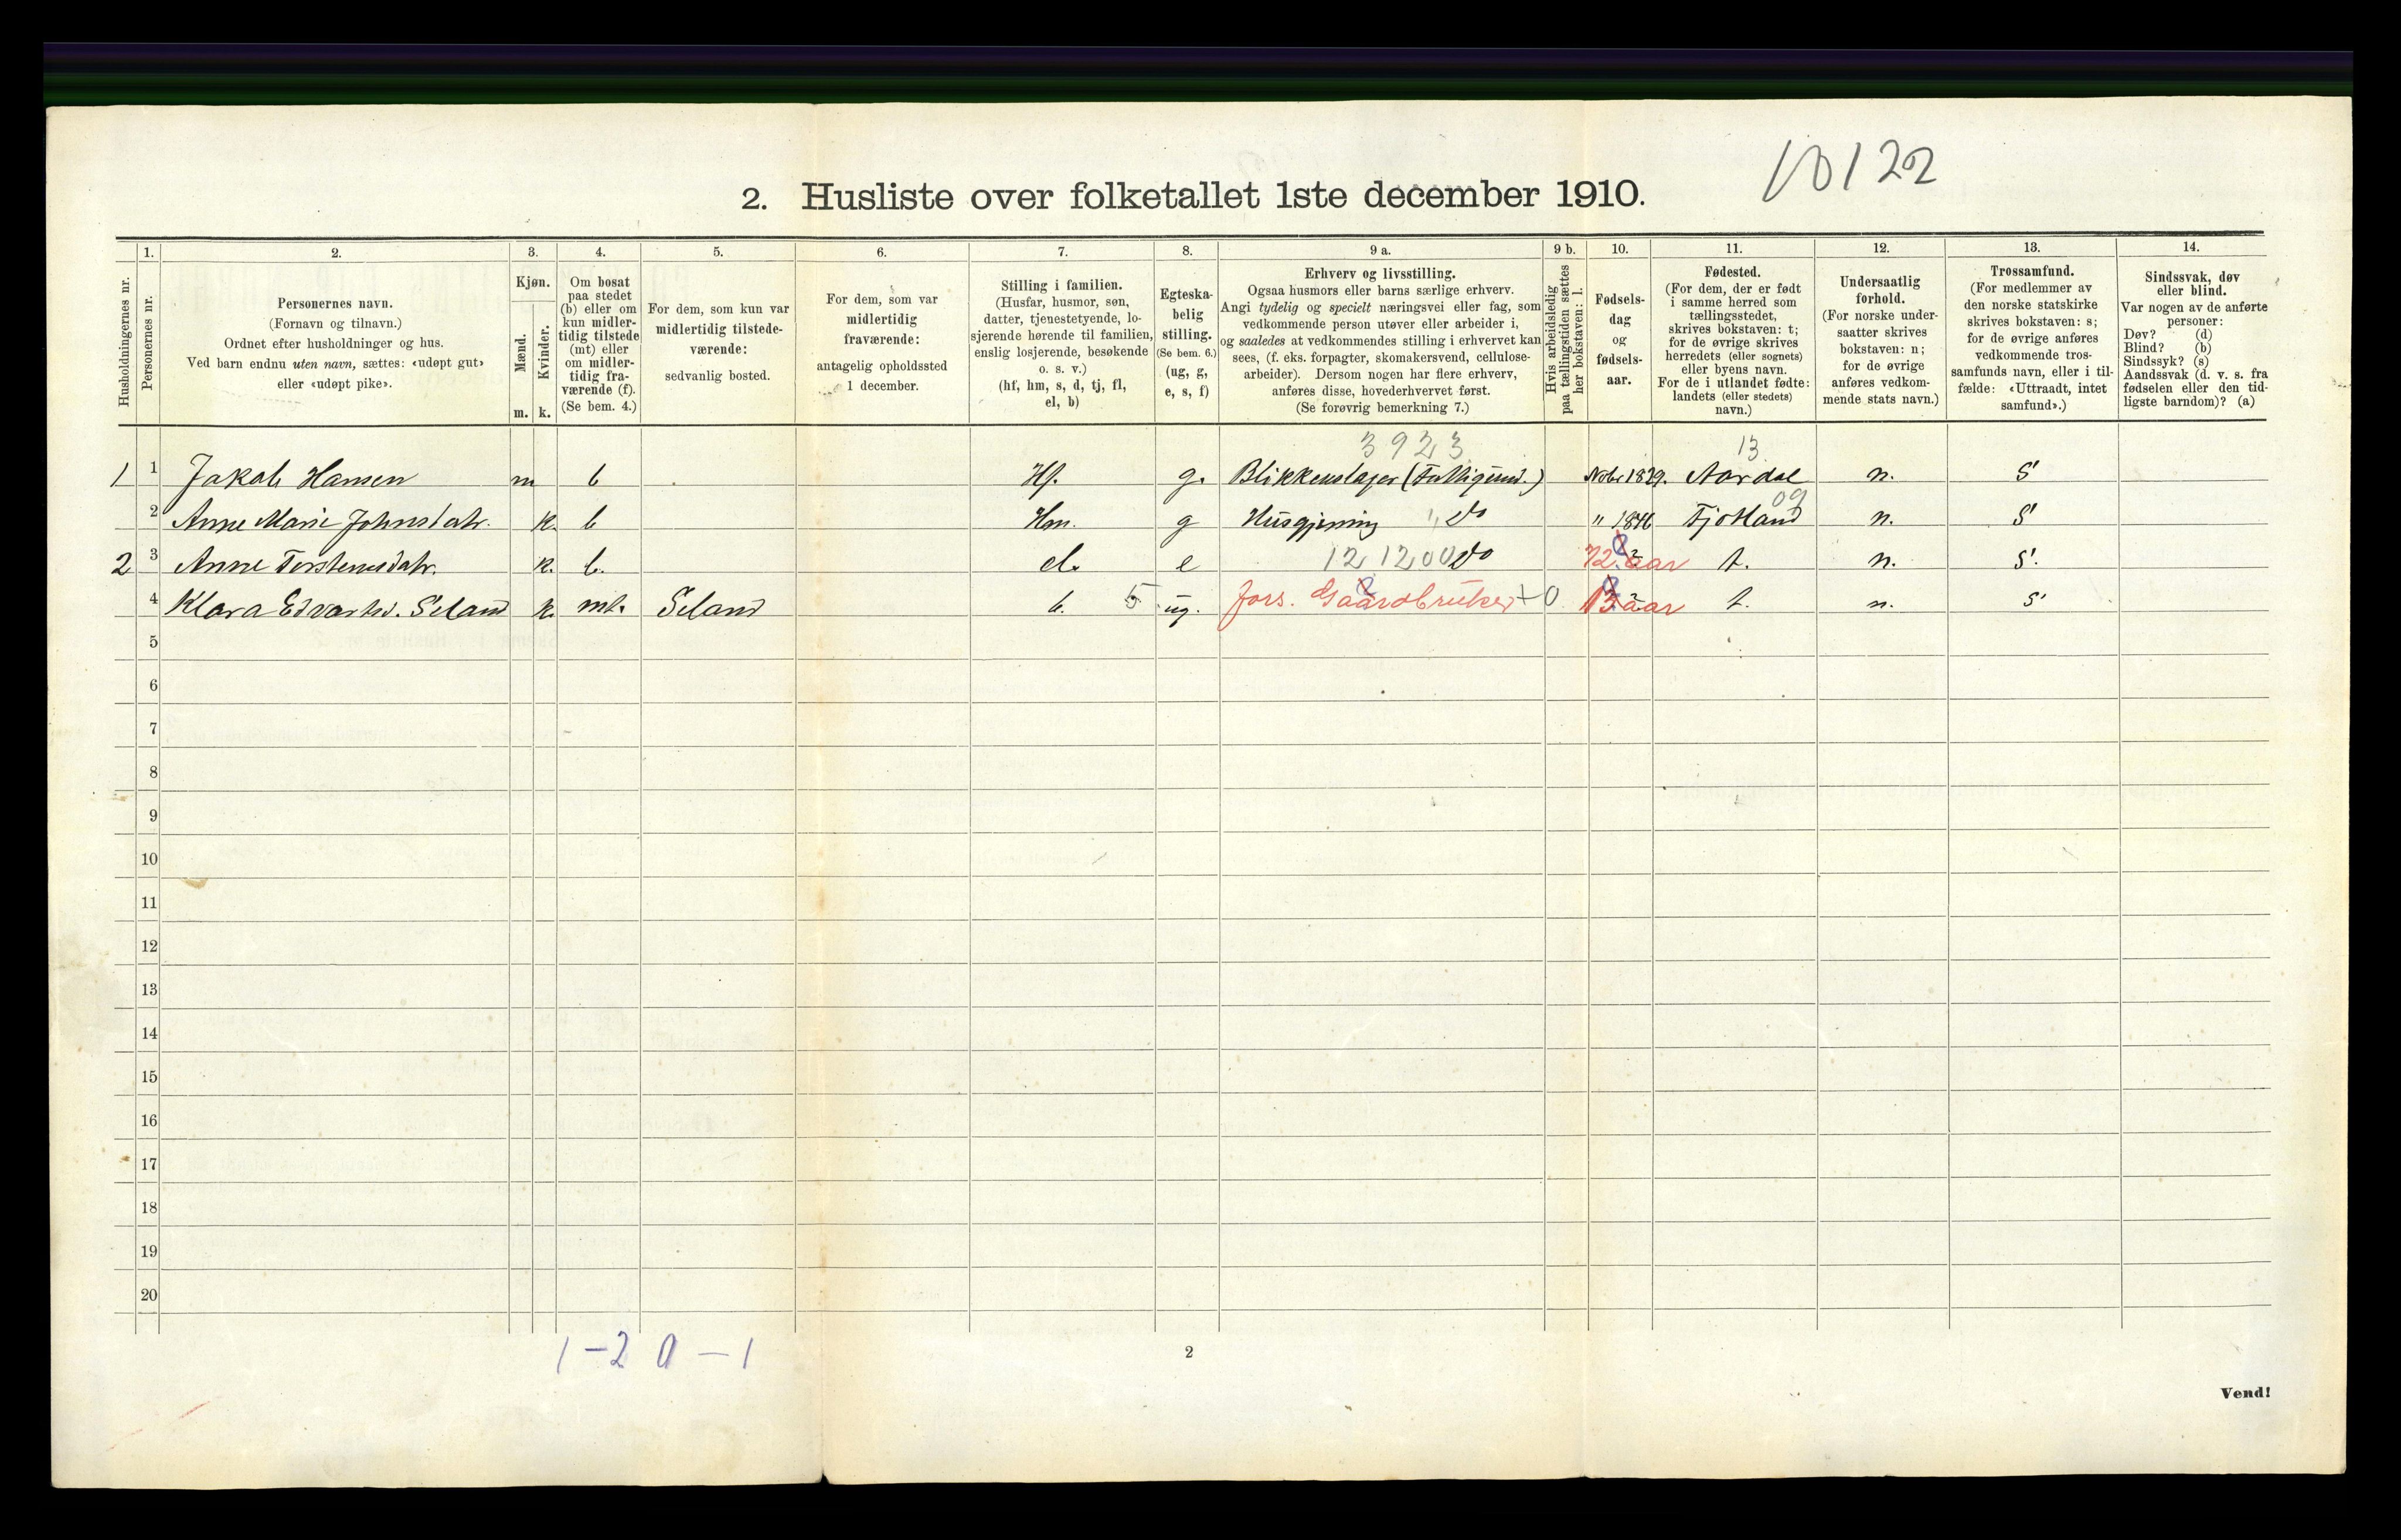 10122
2. Husliste over folketallet 1ste december 1910.
Husholdningernes nr.
1.
Personernes nr.
2.
Personernes navn.
(Fornavn og tilnavn.)
Ordnet efter husholdninger og hus.
Ved barn endnu uten navn, sættes: «udøpt gut»
eller «udøpt pike».
3.
Kjøn.
Mænd.
Kvinder.
m. k.
4.
Om bosat
paa stedet
(b) eller om
kun midler-
tidig tilstede
(mt) eller
om midler-
tidig fra-
værende (f).
(Se bem. 4.)
5.
For dem, som kun var
midlertidig tilstede-
værende:
sedvanlig bosted.
6.
For dem, som var
midlertidig
fraværende:
antagelig opholdssted
1 december.
7.
Stilling i familien.
(Husfar, husmor, søn,
datter, tjenestetyende, lo-
sjerende hørende til familien,
enslig losjerende, besøkende
o. s. v.)
(hf, hm, s, d, tj, fl,
el, b)
8.
Egteska-
belig
stilling.
(Se bem. 6.)
(ug, g,
e, s, f)
9 a.
Erhverv og livsstilling.
Ogsaa husmors eller barns særlige erhverv.
Angi tydelig og specielt næringsvei eller fag, som
vedkommende person utøver eller arbeider i,
og saaledes at vedkommendes stilling i erhvervet kan
sees, (f. eks. forpagter, skomakersvend, cellulose-
arbeider). Dersom nogen har flere erhverv,
anføres disse, hovederhvervet først.
(Se forøvrig bemerkning 7.)
9 b.
Hvis arbeidsledig
paa tællingstiden sættes
her bokstaven: l.
10.
Fødsels-
dag
og
fødsels-
aar.
11.
Fødested.
(For dem, der er født
i samme herred som
tællingsstedet,
skrives bokstaven: t;
for de øvrige skrives
herredets (eller sognets)
eller byens navn.
For de i utlandet fødte:
landets (eller stedets)
navn.)
12.
Undersaatlig
forhold.
(For norske under-
saatter skrives
bokstaven: n;
for de øvrige
anføres vedkom-
mende stats navn.)
13.
Trossamfund.
(For medlemmer av
den norske statskirke
skrives bokstaven: s;
for de øvrige anføres
vedkommende tros-
samfunds navn, eller i til-
fælde: «Uttraadt, intet
samfund».)
14.
Sindssvak, døv
eller blind.
Var nogen av de anførte
personer:
Døv? (d)
Blind? (b)
Sindssyk? (s)
Aandssvak (d. v. s. fra
fødselen eller den tid-
ligste barndom)? (a)
3923 13
1 1 Jakob Hansen m b Hf. g. Blikkenslager (Fattigund.) Nobr 1829. Aardal n. S
09
2 Anne Marie Johnsdatr. k. b Hm. g Husgjerning " Do " 1846 Fjotland n. S
2 3 Anne Torstensdatr. k. b. el. e 121200 Do 72 aar t. n. S.
4 Klara Edvartsd. Seland k. mt. Seland b. 5 ug. fors. Gaardbruker +0 13 aar t. n. S
5
6
7
8
9
10
11
12
13
14
15
16
17
18
19
20
1-2 0-1
2
Vend!